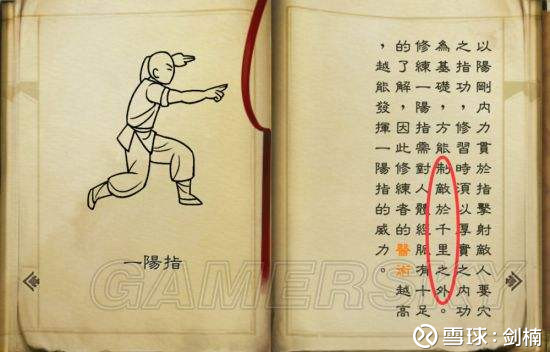 一陽指
以陽剛內力貫於指擊射敵人要穴
之指功，修習時須以厚實之內功
為基礎，方能制敵於千里之外。
修練一陽指需對人體經脈有十足
的了解，因此修練者的醫術越高
，越能發揮一陽指的威力。
GAMERSKY
雪球：剑楠